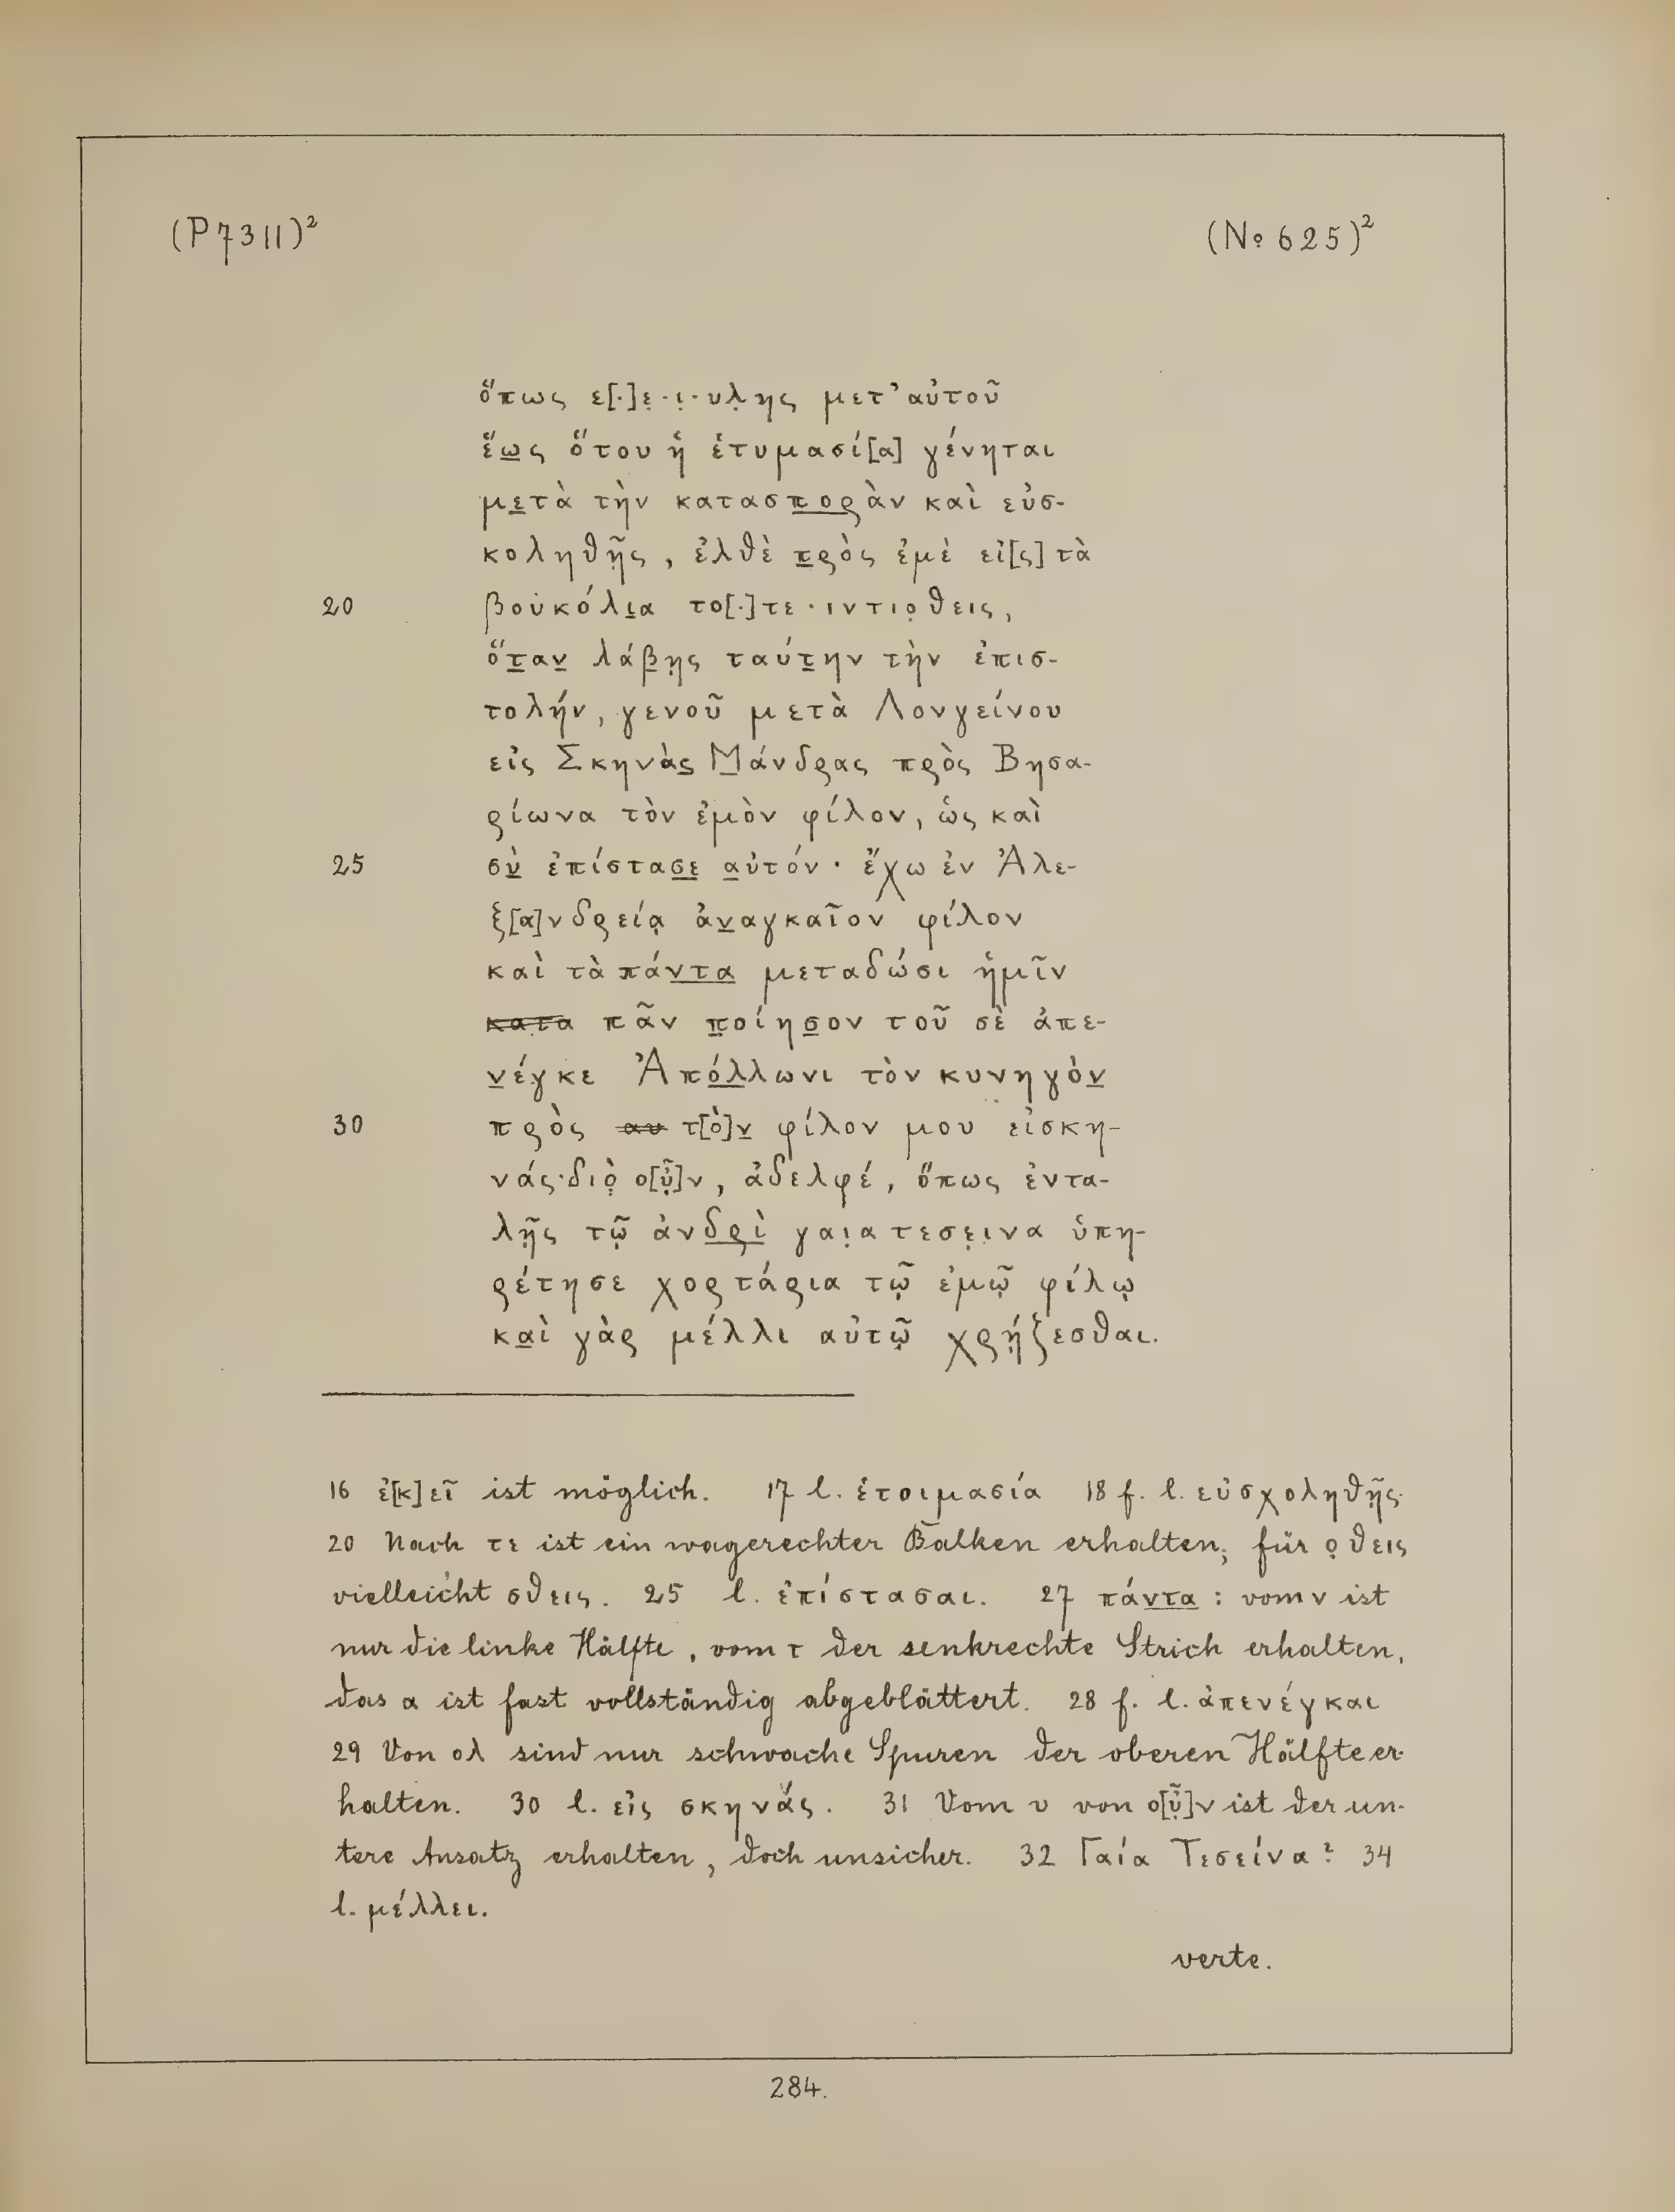 (P7311)²
(No 625)²
ὅπως ε[·]ε̣·ι̣·υλ̣ης μετ’αὐτοῦ
ἕως ὅτου ἡ ἑτυμασί[α] γένηται
μετὰ τὴν κατασπορὰν καὶ εὐσ-
κοληθῇς, ἐλθὲ πρὸς ἐμὲ εἰ[ς] τὰ
20 βουκόλια το[·]τε·ιντιο̣θεις,
ὅταν λάβῃς ταύτην τὴν ἐπισ-
τολήν, γενοῦ μετὰ Λονγείνου
εἰς Σκηνὰς Μάνδρας πρὸς Βησα-
ρίωνα τὸν ἐμὸν φίλον, ὡς καὶ
25 σὺ ἐπίστασε αὐτόν· ἔχω ἐν Ἀλε-
ξ[α]νδρείᾳ ἀναγκαῖον φίλον
καὶ τὰ πάντα μεταδώσι ἡμῖν
κατα πᾶν ποίησον τοῦ σὲ ἀπε-
νέγκε Ἀπόλλωνι τὸν κυνηγὸν
30 πρὸς αυ τ[ὸ]ν φίλον μου εἰσκη-
νάς·διὸ̣ ο[ὖ̣]ν, ἀδελφέ, ὅπως ἐντα-
λῇς τῷ ἀνδρὶ γαι̣ατεσε̣ινα ὑπη-
ρέτησε χορτάρια τῷ ἐμῷ φίλῳ
καὶ γὰρ μέλλι αὐτῷ χρῄζεσθαι.
16 ἐ[κ]εῖ ist möglich. 17 l. ἑτοιμασία 18 f. l. εὐσχοληθῇς.
20 Nach τε ist ein wagerechter Balken erhalten; für ο̣θεις
vielleicht σθεις. 25 l. ἐπίστασαι. 27 πάντα : vom ν ist
nur die linke Hälfte, vom τ der senkrechte Strich erhalten,
das α ist fast vollständig abgeblättert. 28 f. l. ἀπενέγκαι
29 Von ολ sind nur schwache Spuren der oberen Hälfte er-
halten. 30 l. εἰς σκηνάς. 31 Vom υ von ο[ὖ̣]ν ist der un-
tere Ansatz erhalten, doch unsicher. 32 Γαία Τεσείνα? 34
l. μέλλει.
verte.
284.